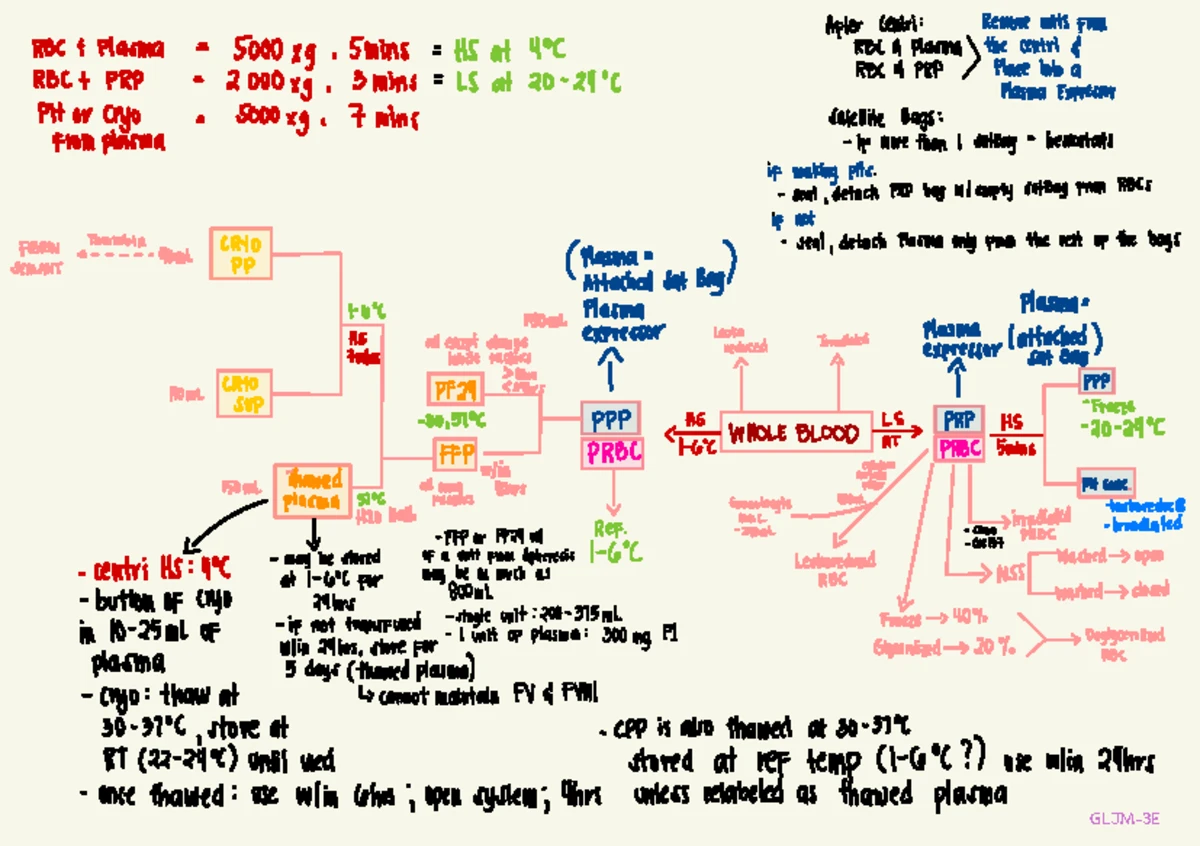 RBC & Plasma = 5000 xg . 5mins = HS at 4°C
RBC + PRP = 2000 xg . 3 mins = LS at 20-24°C
Plt or Cryo from plasma = 5000 xg . 7 mins
After Centri:
RBC & Plasma
RBC & PRP
Remove units from
the centri &
Place into a
Plasma Expressor
Satellite Bags:
- if more than 1 satbag = hemostats
if making plts.
- seal, detach PRP bag w/ empty satbag from RBCs
if not
- seal, detach Plasma only from the rest of the bags
FIBRIN
SEALANT
Thrombin
CRYO
PP
1-6°C
HS
7mins
CRYO
SUP
(Plasma =
Attached Sat Bag)
Plasma
expressor
PF24
-30, 37°C
FFP
w/in
PPP
PRBC
Ref.
1-6°C
Leuko
reduced
Irradiated
HS
1-6°C
WHOLE BLOOD
LS
RT
Plasma
expressor
Plasma =
(attached
sat bag)
PRP
PRBC
HS
5mins
PPP
*Freeze
-20-24°C
Plt conc.
- leukoreduced
- irradiated
irradiated
PRBC
Leukoreduced
RBC
NSS
Washed → open
washed → closed
Freeze → 40%
Glycerolized → 20%
Deglycerolized
RBC
150mL
Thawed
plasma
37°C
- centri HS: 4°C
- button of cryo
in 10-25 mL of
plasma
- cryo: thaw at
30-37°C, store at
RT (22-24°C) until used
- once thawed: use w/in 6hrs ; open system; 4hrs
- may be stored
at 1-6°C for
24hrs
- if not transfused
w/in 24hrs, store for
5 days (thawed plasma)
↳ cannot maintain FV & FVIII
- FFP or PF24 vol
of a unit from apheresis
may be as much as
800mL
- single unit: 200-375mL
- 1 unit of plasma: 300 mg FI
- CPP is also thawed at 30-37°C
stored at ref temp (1-6°C ?) use w/in 24hrs
unless relabeled as thawed plasma
GLJM-3E